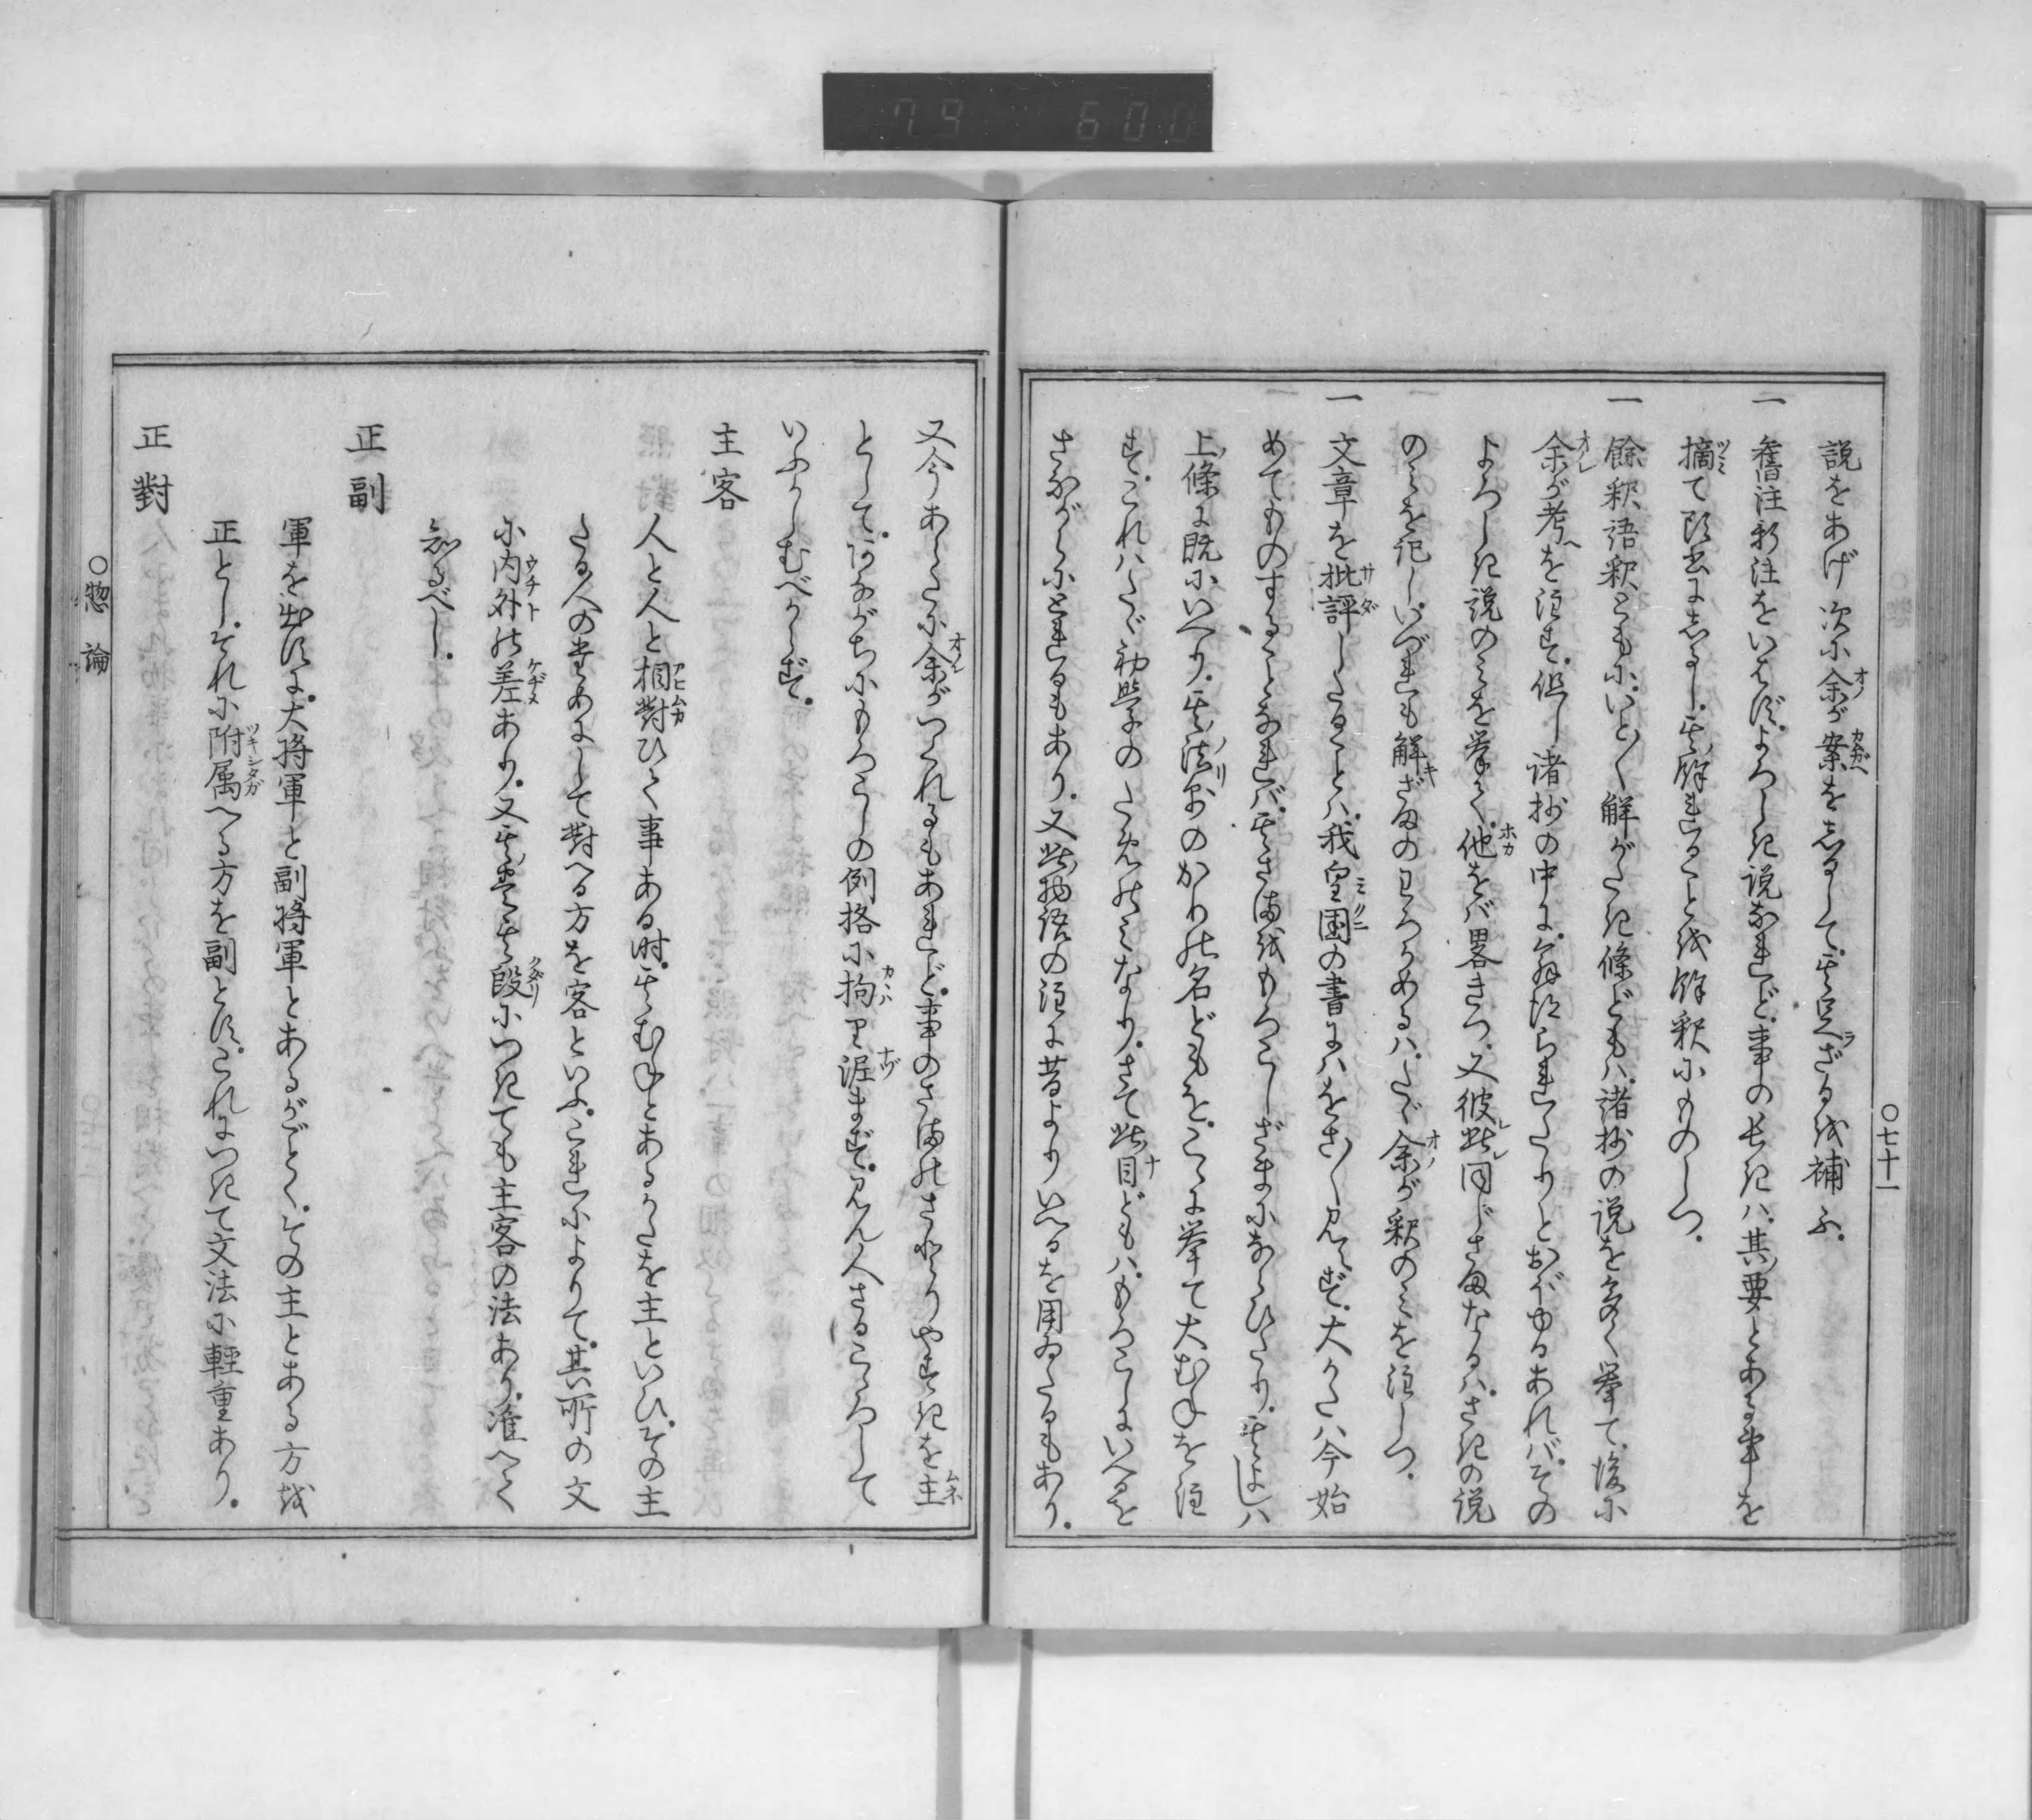 79 600
〇七十一
説をあげ次に余が案をしるして其足ざるを補ふ。
一 舊注新注をいはずよろしき説なれど事の長きハ其要とある事を
摘て頭書にしるし其餘れることを餘釈にものしつ。
一 餘釈語釈ともにいと〱解がたき條どもハ諸抄の説を多く挙て後に
余が考へを注す。但し諸抄の中に
とおぼゆるあれバその
よろしき説のミを挙て他をバ畧きつ。又彼此同じさまなるハさきの説
のミを記しいづれも解ざまのわろかめるハたゞ余が釈のミを注しつ。
一 文章を批評したることハ我皇国の書にハをさ〱見えず。大かたハ今始
めてものすることなれバ其さまをもろこしざまにならひたり。其よしハ
上條に既にいへり。其法則のかりの名どもをこゝに挙て大むねを注
す。これハたゞ初学のためのミなり。さて此目どもハもろこしにいへるを
さながらにとれるもあり。又此物語の注に昔よりいへるを用ゐたるもあり。
又今あらたに余がつくれるもあれど事のさまのさとりやすきを主
として。あながちにもろこしの例格に拘り泥まず。見ん人さるこゝろして
いふかしむべからず。
主客
人と人と相對ひて事ある時其むねとあるかたを主といひその主
たる人のむかひにして對へる方を客といふ。これによりて其所の文
に内外の差あり。又其
其段につきても主客の法あり准へて
知るべし。
正副
軍を出すに大将軍と副将軍とあるがごとくその主とある方を
正としそれに附属へる方を副とす。これにつきて文法に軽重あり。
正對
〇惣論